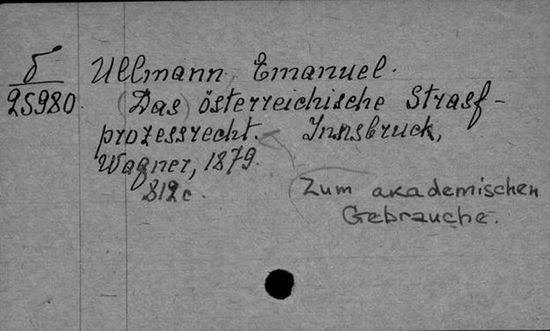 б
25980
Ullmann, Emanuel.
(Das) österreichische Strasf-
prozessrecht. Innsbruck,
Wagner, 1879.
812 c.
Zum akademischen
Gebrauche.